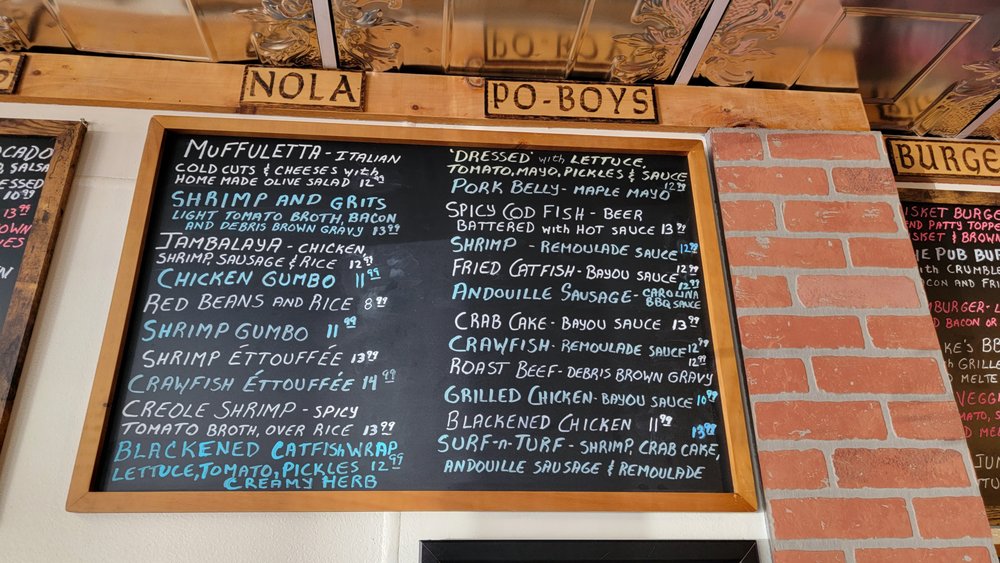 NOLA
PO-BOYS
BURGE
MUFFULETTA - ITALIAN
COLD CUTS & CHEESES with
HOME MADE OLIVE SALAD 12.99
SHRIMP AND GRITS
LIGHT TOMATO BROTH, BACON
AND DEBRIS BROWN GRAVY 13.99
JAMBALAYA - CHICKEN,
SHRIMP, SAUSAGE & RICE 12.99
CHICKEN GUMBO 11.99
RED BEANS AND RICE 8.99
SHRIMP GUMBO 11.99
SHRIMP ÉTTOUFFÉE 13.99
CRAWFISH ÉTTOUFFÉE 14.99
CREOLE SHRIMP - SPICY
TOMATO BROTH, OVER RICE 13.99
BLACKENED CATFISH WRAP
LETTUCE, TOMATO, PICKLES 12.99
CREAMY HERB
'DRESSED' with LETTUCE,
TOMATO, MAYO, PICKLES & SAUCE
PORK BELLY - MAPLE MAYO 12.99
SPICY COD FISH - BEER
BATTERED with HOT SAUCE 13.99
SHRIMP - REMOULADE SAUCE 12.99
FRIED CATFISH - BAYOU SAUCE 12.99
ANDOUILLE SAUSAGE - CAROLINA BBQ SAUCE 12.99
CRAB CAKE - BAYOU SAUCE 13.99
CRAWFISH - REMOULADE SAUCE 12.99
ROAST BEEF - DEBRIS BROWN GRAVY 12.99
GRILLED CHICKEN - BAYOU SAUCE 10.99
BLACKENED CHICKEN 11.99
SURF-n-TURF - SHRIMP, CRAB CAKE, 13.99
ANDOUILLE SAUSAGE & REMOULADE
OCADO
, SALSA
ESSED
10.99
13.99
OWN
HES
ISKET BURGE
ND PATTY TOPPE
SKET & BROWN
HE PUB BUR
ith CRUMBLE
CON AND FRI
MBURGER - L
D BACON OR
KE'S BB
h GRILLE
D MELTE
VEGG
MATO, S
D MEL
JUN